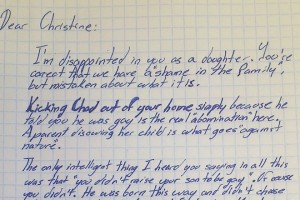 Dear Christine:
I'm disappointed in you as a daughter. You're
correct that we have a "shame in the family",
but mistaken about what it is.
Kicking Chad out of your home simply because he
told you he was gay is the real "abomination" here.
A parent disowning her child is what goes "against
nature".
The only intelligent thing I heard you saying in all this
was that "you didn't raise your son to be gay". Of course
you didn't. He was born this way and didn't choose